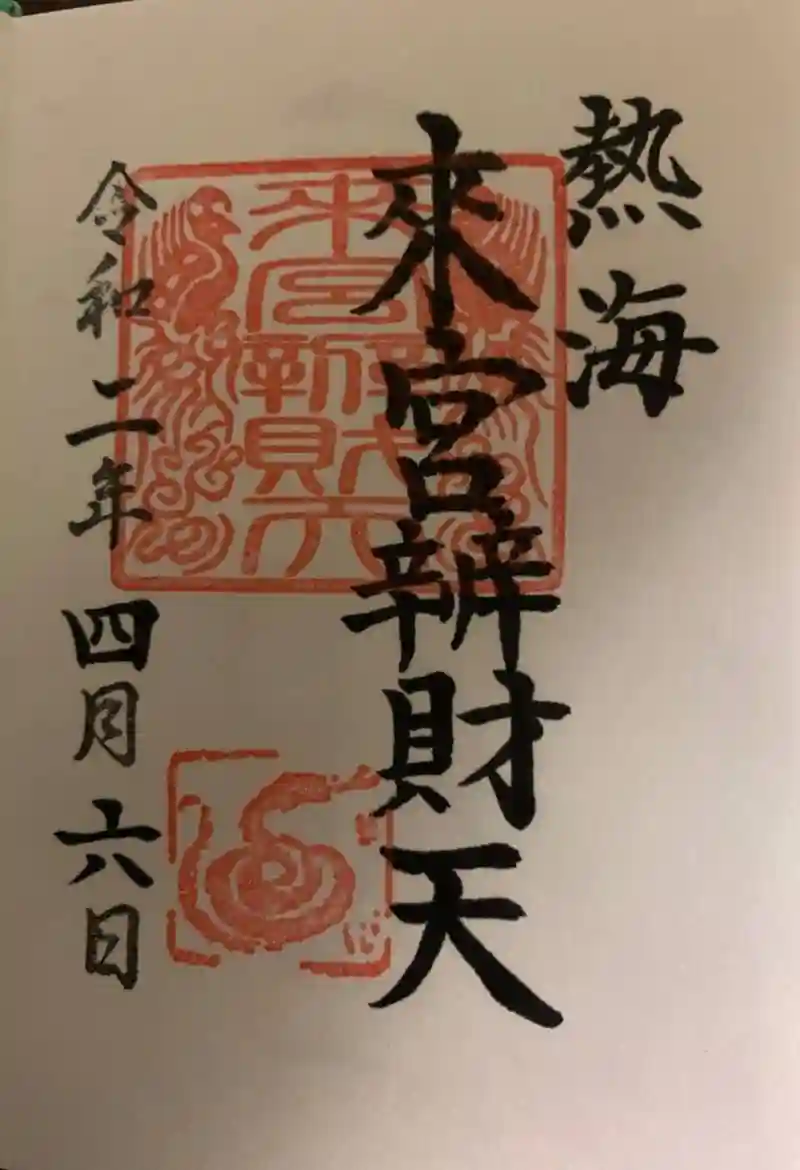 熱海
來宮辨財天
令和二年四月六日
来宮
辨財天